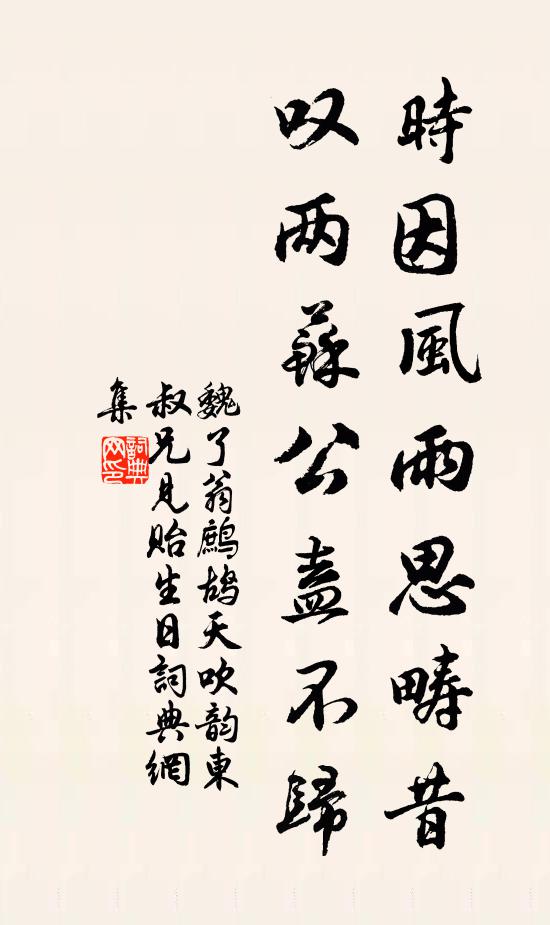 時因風雨思疇昔
叹两蘇公盍不歸
魏了翁鷓鴣天吹韵東
叔兄見貽生日詞典網
集
詞典
网印